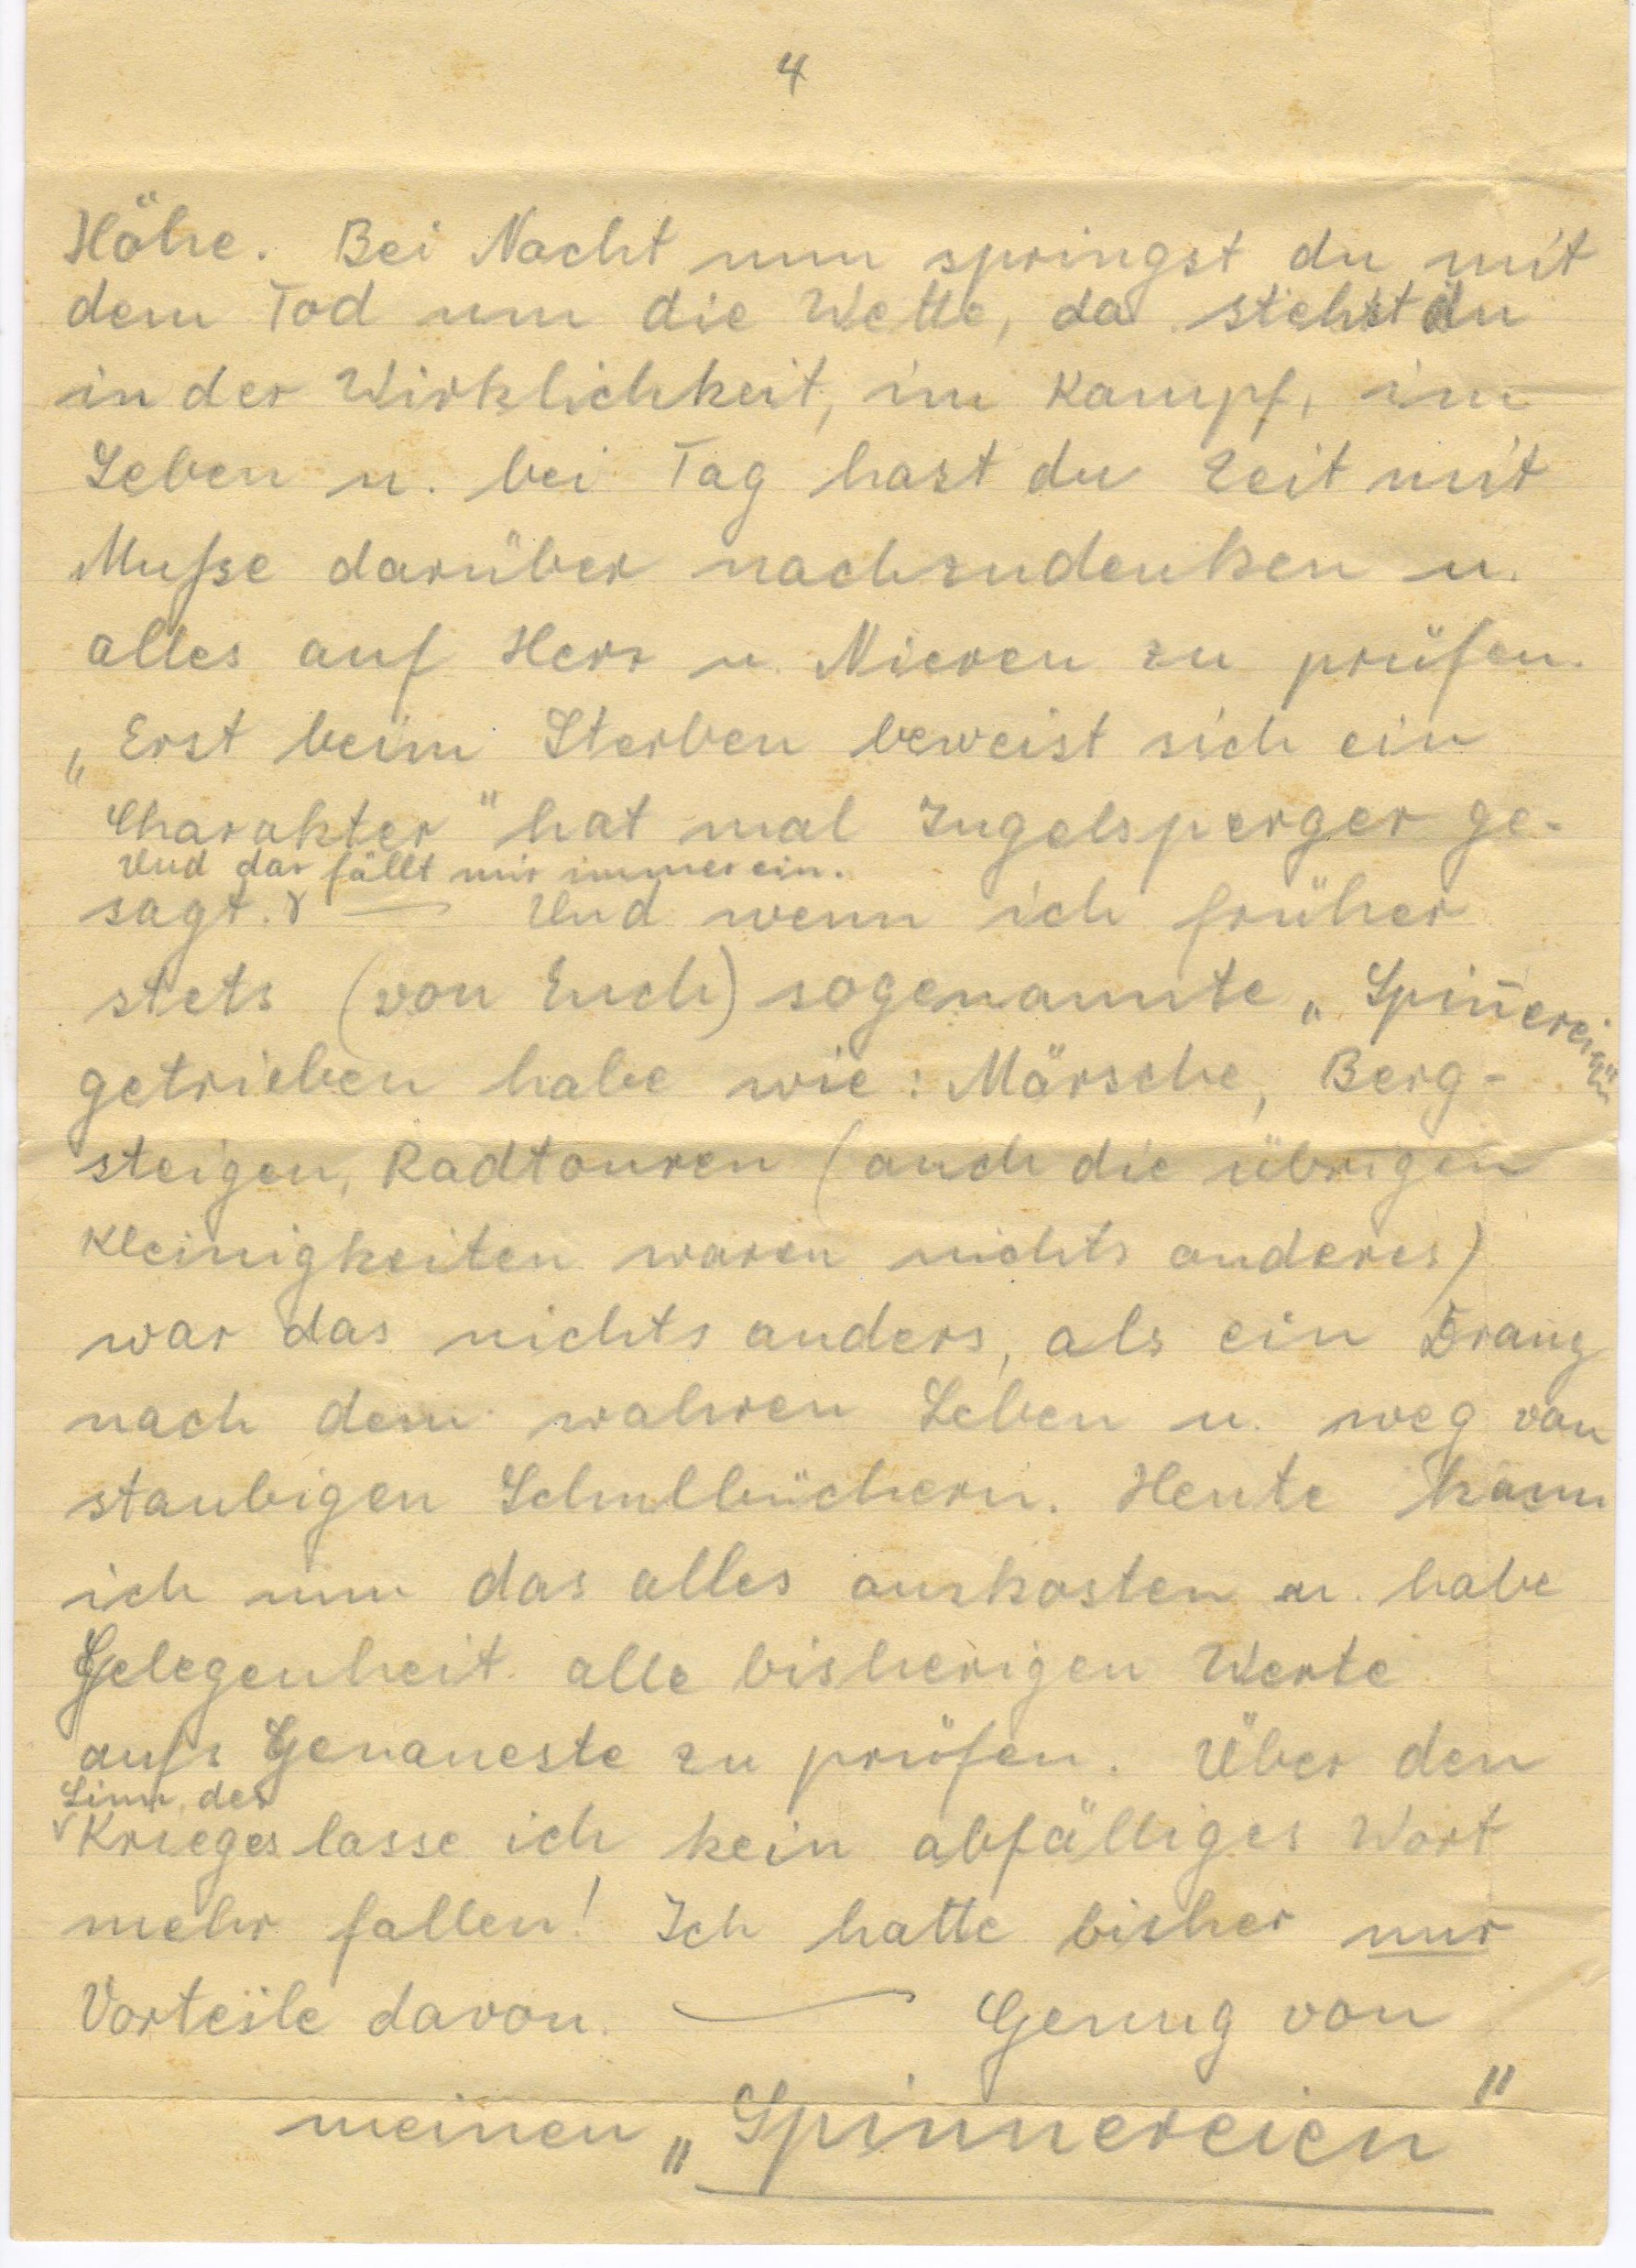 4
Höhe. Bei Nacht nun springst du mit
dem Tod um die Wette, da stehst du
in der Wirklichkeit, im Kampf, im
Leben u. bei Tag hast du Zeit mit
Muſse darüber nachzudenken u.
alles auf Herz u. Nieren zu prüfen.
„Erst beim Sterben beweist sich ein
Charakter" hat mal Ingelsperger ge-
Und das fällt mir immer ein.
sagt. — Und wenn ich früher
stets (von Euch) sogenannte „Spin̄ereien"
getrieben habe wie: Märsche, Berg-
steigen, Radtouren (auch die übrigen
Kleinigkeiten waren nichts anderes)
war das nichts anders, als ein Drang
nach dem wahren Leben u. weg von
staubigen Schulbüchern. Heute kann
ich nun das alles auskosten u. habe
Gelegenheit alle bisherigen Werte
aufs Genaueste zu prüfen. Über den
Sinn des
Krieges lasse ich kein abfälliges Wort
mehr fallen! Ich hatte bisher nur
Vorteile davon. — Genug von
meinen „Spinnereien"